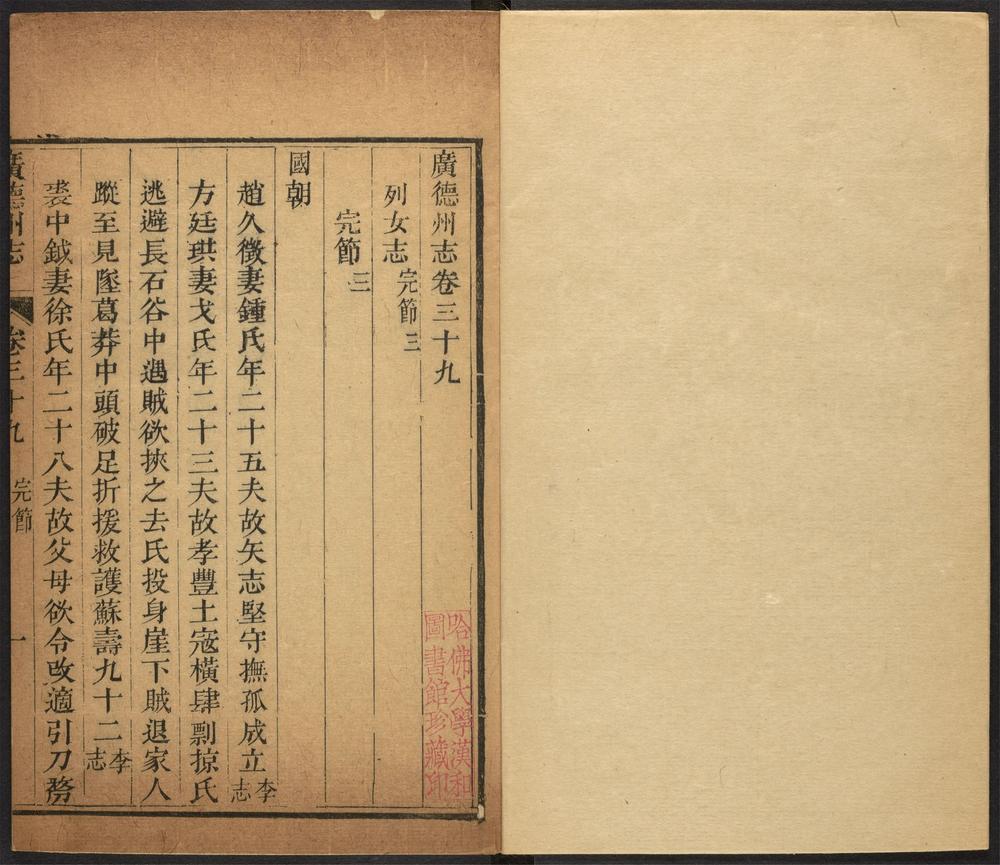 廣德州志卷三十九
列女志 完節三
完節三
國朝
趙久徵妻鍾氏年二十五夫故矢志堅守撫孤成立李志
方廷珙妻戈氏年二十三夫故孝豐土宼橫肆剽掠氏
逃避長石谷中遇賊欲挾之去氏投身崖下賊退家人
蹤至見墜葛莽中頭破足折援救護蘇壽九十二李志
裘中鉞妻徐氏年二十八夫故父母欲令改適引刀剺
廣德州志 卷三十九 完節 一
哈佛大學漢和
圖書館珍藏印